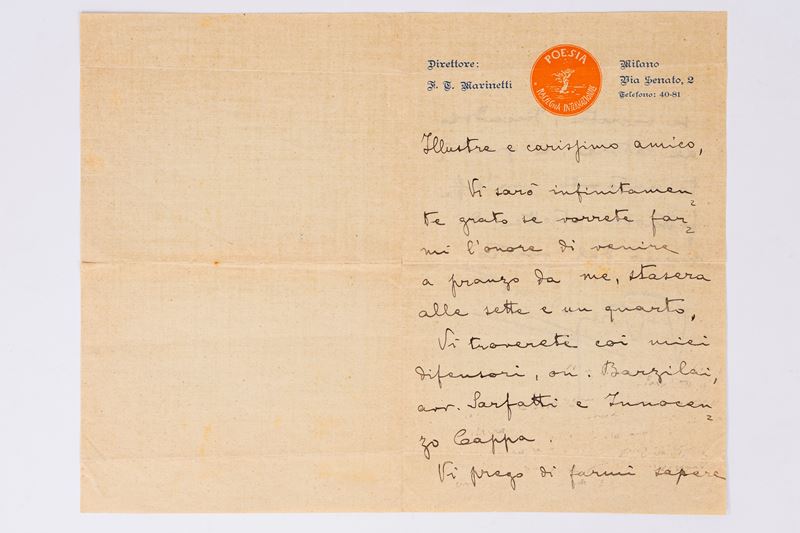 Direttore:
F. T. Marinetti
POESIA
RASSEGNA INTERNAZIONALE
Milano
Via Senato, 2
Telefono: 40-81
Illustre e carissimo amico,
Vi sarò infinitamen=
te grato se vorrete far=
mi l'onore di venire
a pranzo da me, stasera
alle sette e un quarto.
Vi troverete coi miei
difensori, on. Barzilai,
avv. Sarfatti e Innocen=
zo Cappa.
Vi prego di farmi sapere